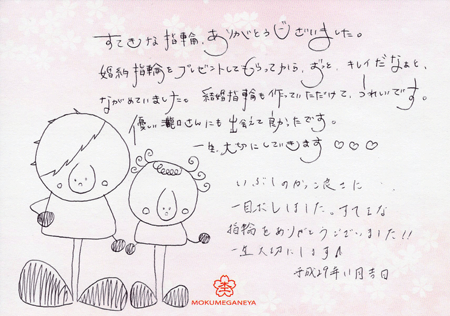 すてきな指輪、ありがとうございました。
婚約指輪をプレゼントしてもらってから、ずっと、キレイだなぁと、
ながめていました。結婚指輪も作っていただけて、うれしいです。
優しい瀧口さんにも出会えて良かったです。
一生、大切にしていきます♡♡♡
いぶしのかっこ良さに…
一目ぼれしました。すてきな
指輪をありがとうございました!!
一生大切にします♪
平成29年11月吉日
MOKUMEGANEYA